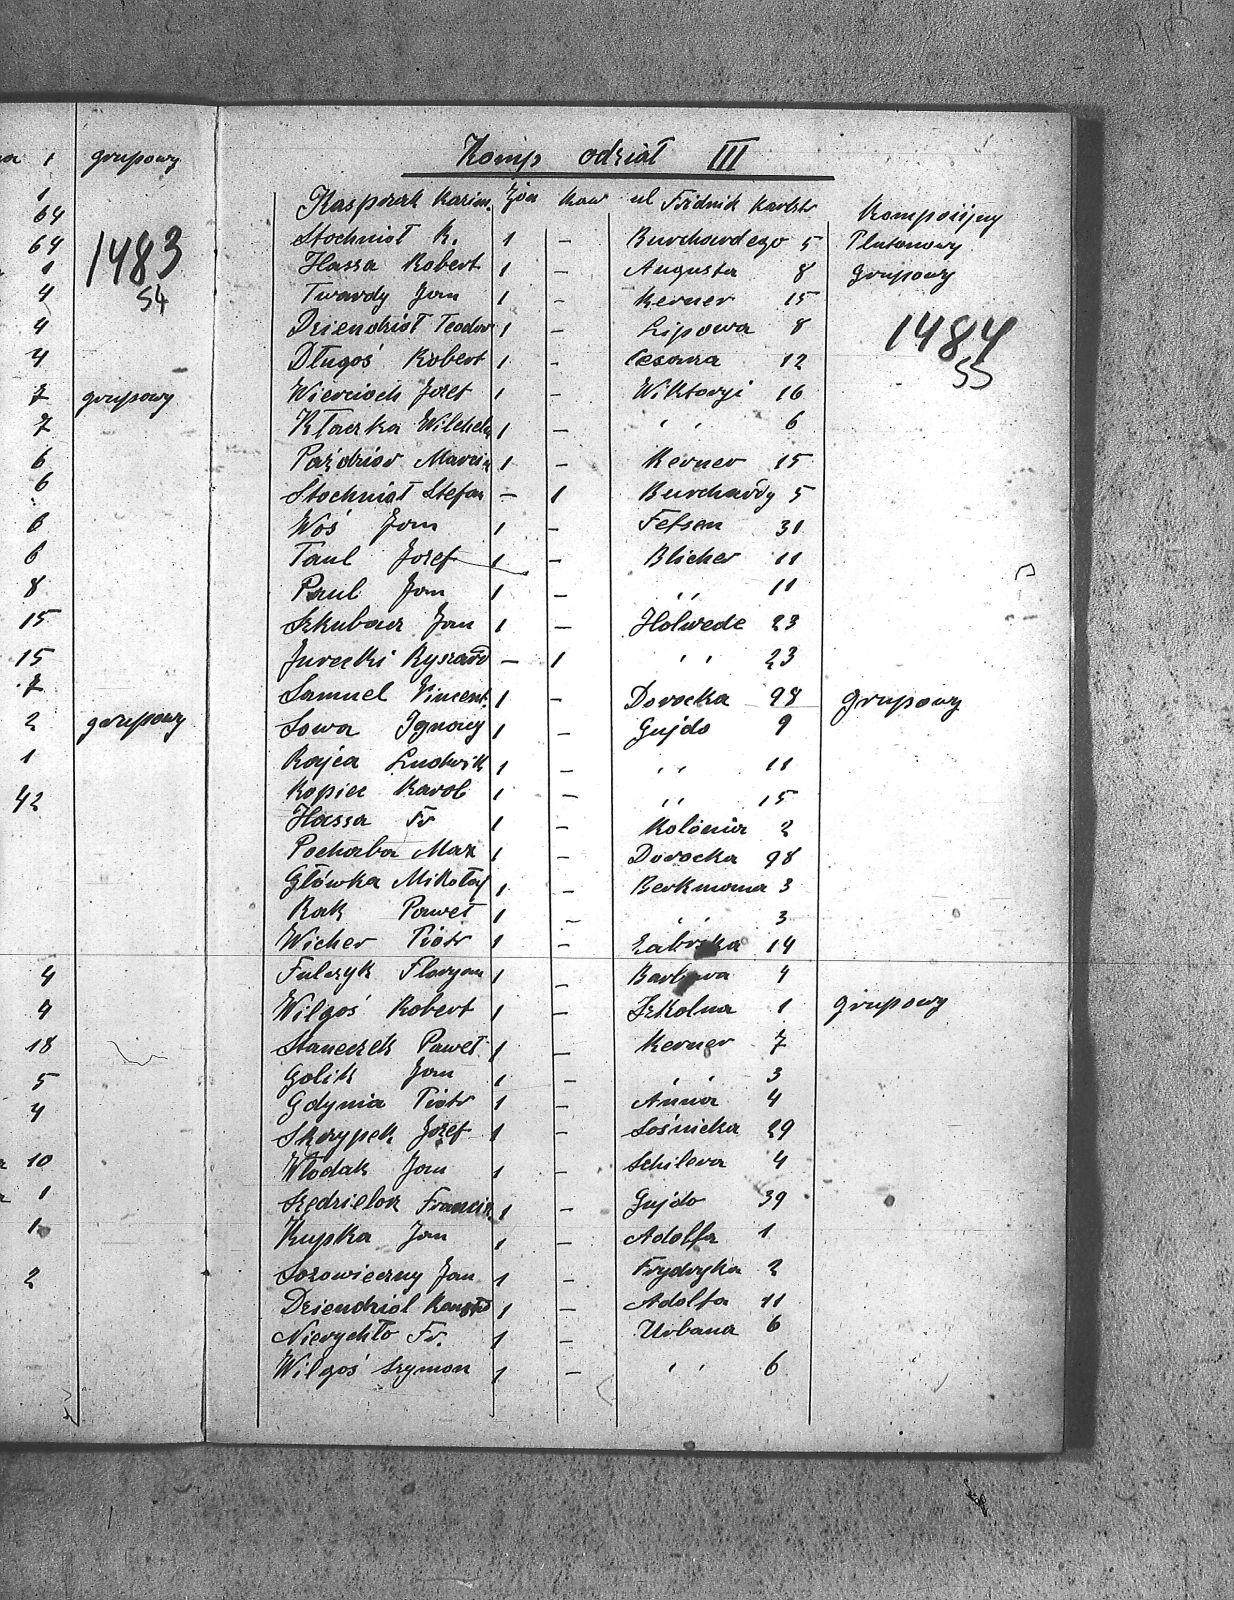 1 grupowy
1
64
64
1
4
4
4
7 grupowy
7
6
6
6
6
8
15
15
7
2 grupowy
1
42
4
4
18
5
4
10
1
1
2
1483
54
Komp odział III
Kasperek Kazim. żon kaw ul
Stochniol K. 1 - Burchardego 5 Plutonowy
Hassa Robert 1 - Augusta 8 grupowy
Twardy Jan 1 - Kerner 15
Dziendziol Teodor 1 - Lipowa 8
1484
55
Długoś Robert 1 - Cesarza 12
Wiercioch Jozef 1 - Wiktoryi 16
Kłaczka Wilchelm 1 - " 6
Paździor Marcin 1 - Kerner 15
Stochniol Stefan - 1 Burchardy 5
Woś Jan 1 - Felsen 31
Taul Jozef 1 - Blicher 11
Paul Jan 1 - " 11
Szkubacz Jan 1 - Holwede 23
Jurecki Ryszard - 1 " 23
Samuel Vincent. 1 - Dorocka 98 grupowy
Sowa Ignacy 1 - Gujdo 9
Rajca Ludwik 1 - " 11
Kopiec Karol 1 - " 15
Hassa Fr 1 - Kolonia 2
Pochaba Max 1 - Dorocka 98
Główka Mikołaj 1 - Berkmana 3
Rak Paweł 1 - " 3
Wicher Piotr 1 - Zabrska 14
Fulczyk Floryan 1 - 4
Wilgoś Robert 1 - Szkolna 1 grupowy
Staneczek Paweł 1 - Kerner 7
Golik Jan 1 - " 3
Gdynia Piotr 1 - Anna 4
Skrzypek Jozef 1 - Sośnicka 29
Włodak Jan 1 - Schilera 4
Szędzielorz Francis 1 - Gujdo 39
Kupka Jan 1 - Adolfa 1
Sozowieczny Jan 1 - Frydryka 2
Dziendziol 1 - Adolfa 11
Nierychło Fr. 1 - Urbana 6
Wilgoś Szymon 1 - " 6